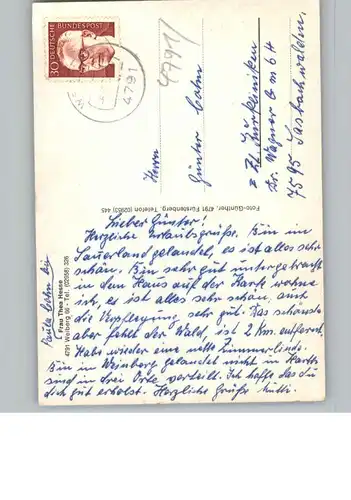 DEUTSCHE BUNDESPOST
30
4791
4791
Herrn
Günter Bohm
z Zt. Kurkliniken
Dr. Wagner GmbH
7595 Sasbachwalden
Foto-Günther, 4791 Fürstenberg, Telefon (02953) 445
Frau Thea Hesse
4791 Weiberg 60 · Tel. (02958) 326
Lieber Günter!
Herzliche Urlaubsgrüße. Bin im
Sauerland gelandet, es ist alles sehr
schön. Bin sehr gut untergebracht
in dem Haus auf der Karte wohne
ich, es ist alles sehr schön, auch
die Verpflegung sehr gut. Das schönste
aber fehlt der Wald, ist 2 Km. entfernt.
Habe wieder eine nette Zimmerlinde.
Bin in Weinberg gelandet nicht in Harth
sind in drei Orte verteilt. Ich hoffe das du
dich gut erholst. Herzliche Grüße Mutti.